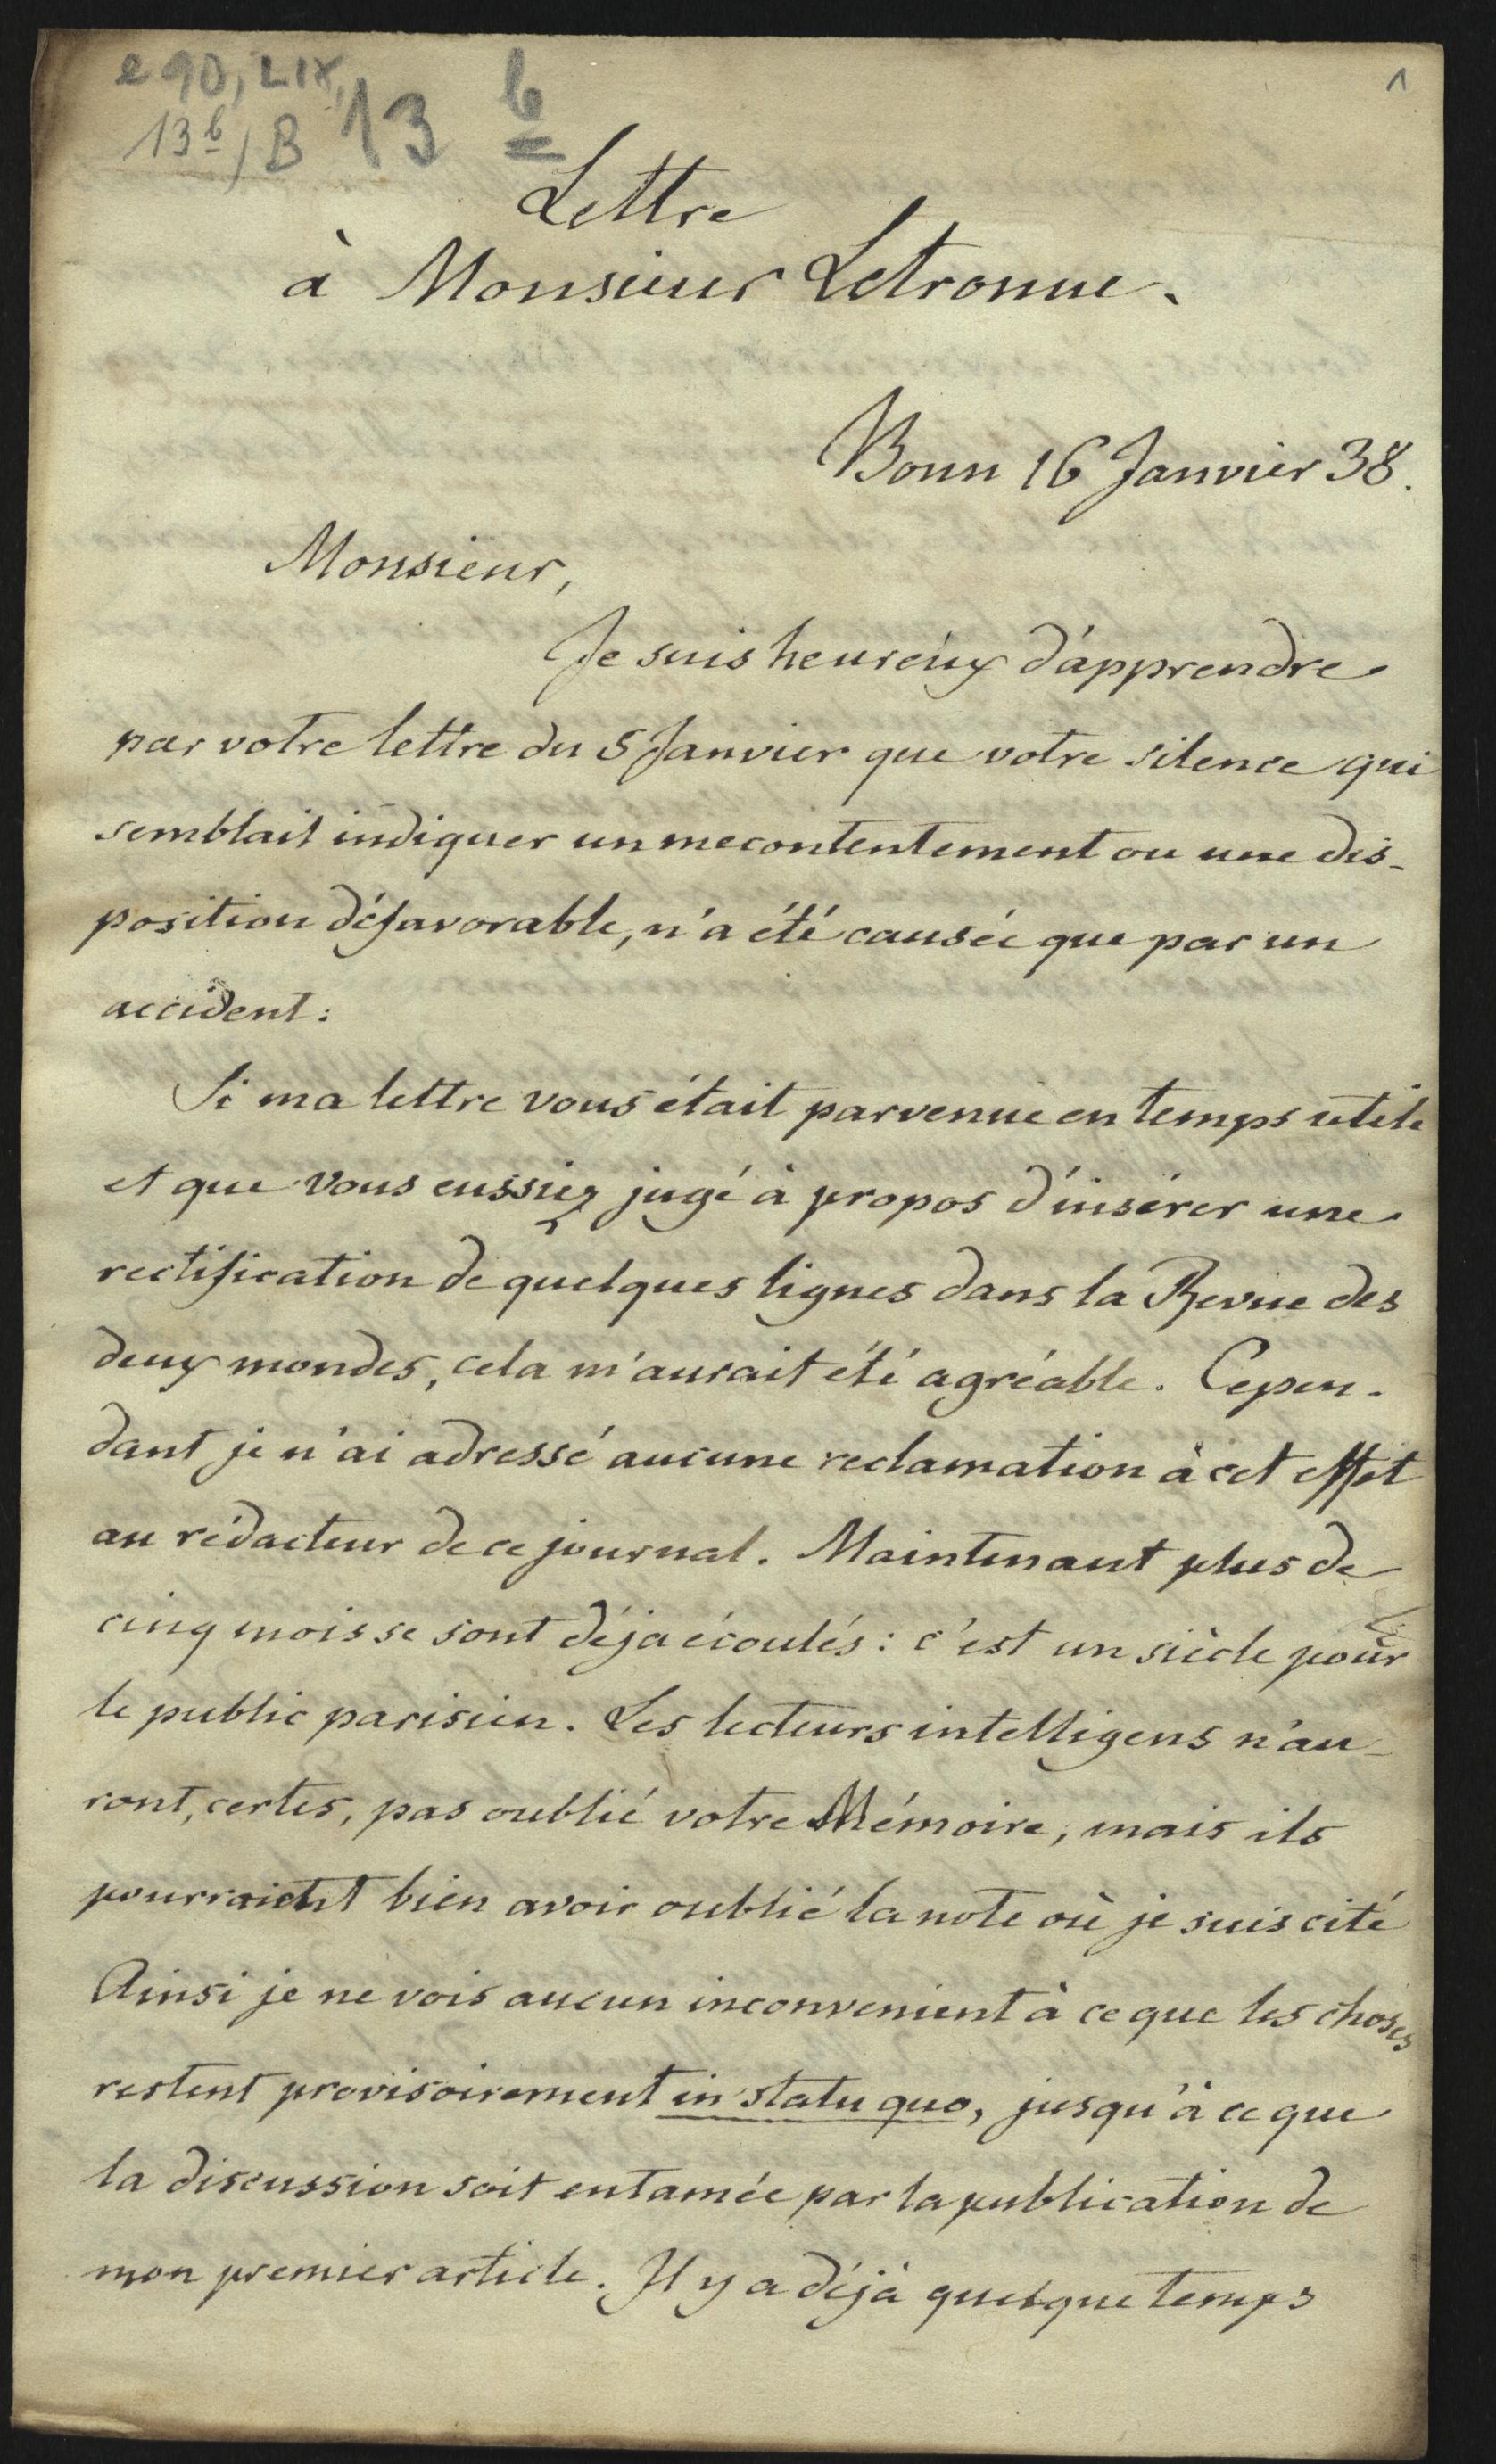 e 90, LIX,
13b, B 13 b
1
Lettre
à Monsieur Letronne.
Bonn 16 Janvier 38.
Monsieur,
Je suis heureux d'apprendre
par votre lettre du 5 Janvier que votre silence qui
semblait indiquer un mecontentement ou une dis-
position défavorable, n'a été causée que par un
accident:
Si ma lettre vous était parvenue en temps utile
et que vous eussiez jugé à propos d'insérer une
rectification de quelques lignes dans la Revue des
deux mondes, cela m'aurait été agréable. Cepen-
dant je n'ai adressé aucune reclamation à cet effet
au rédacteur de ce journal. Maintenant plus de
cinq mois se sont déja écoulés: c'est un siècle pour
le public parisien. Les lecteurs intelligens n'au-
ront, certes, pas oublié votre Mémoire, mais ils
pourraient bien avoir oublié la note où je suis cité
Ainsi je ne vois aucun inconvenient à ce que les choses
restent provisoirement in statu quo, jusqu'à ce que
la discussion soit entamée par la publication de
mon premier article. Il y a déjà quelque temps